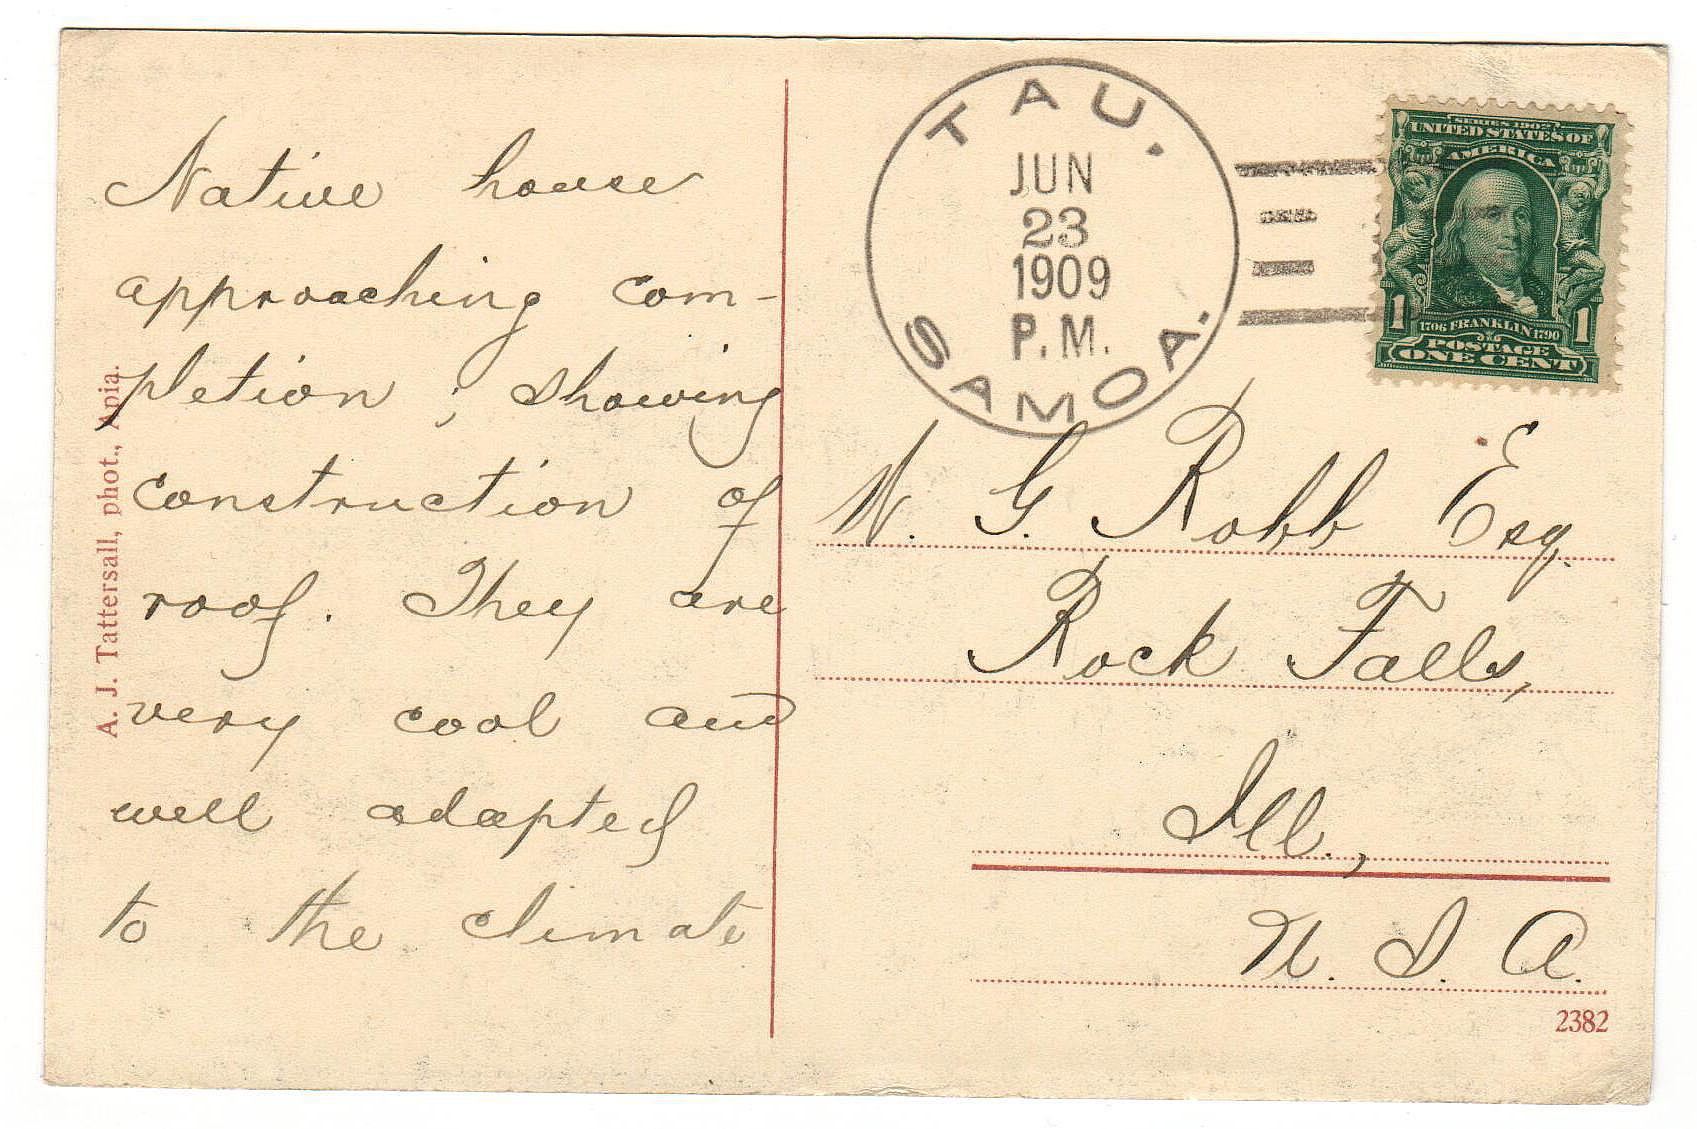 Native house
approaching com-
pletion ; showing
construction of
roof. They are
very cool and
well adapted
to the climate
A. J. Tattersall, phot., Apia.
TAU.
JUN
23
1909
P.M.
SAMOA.
SERIES 1902
UNITED STATES OF
AMERICA
1 1
1706 FRANKLIN 1790
POSTAGE
ONE CENT
W. G. Robb Esq.
Rock Falls,
Ill.,
U. S. A.
2382